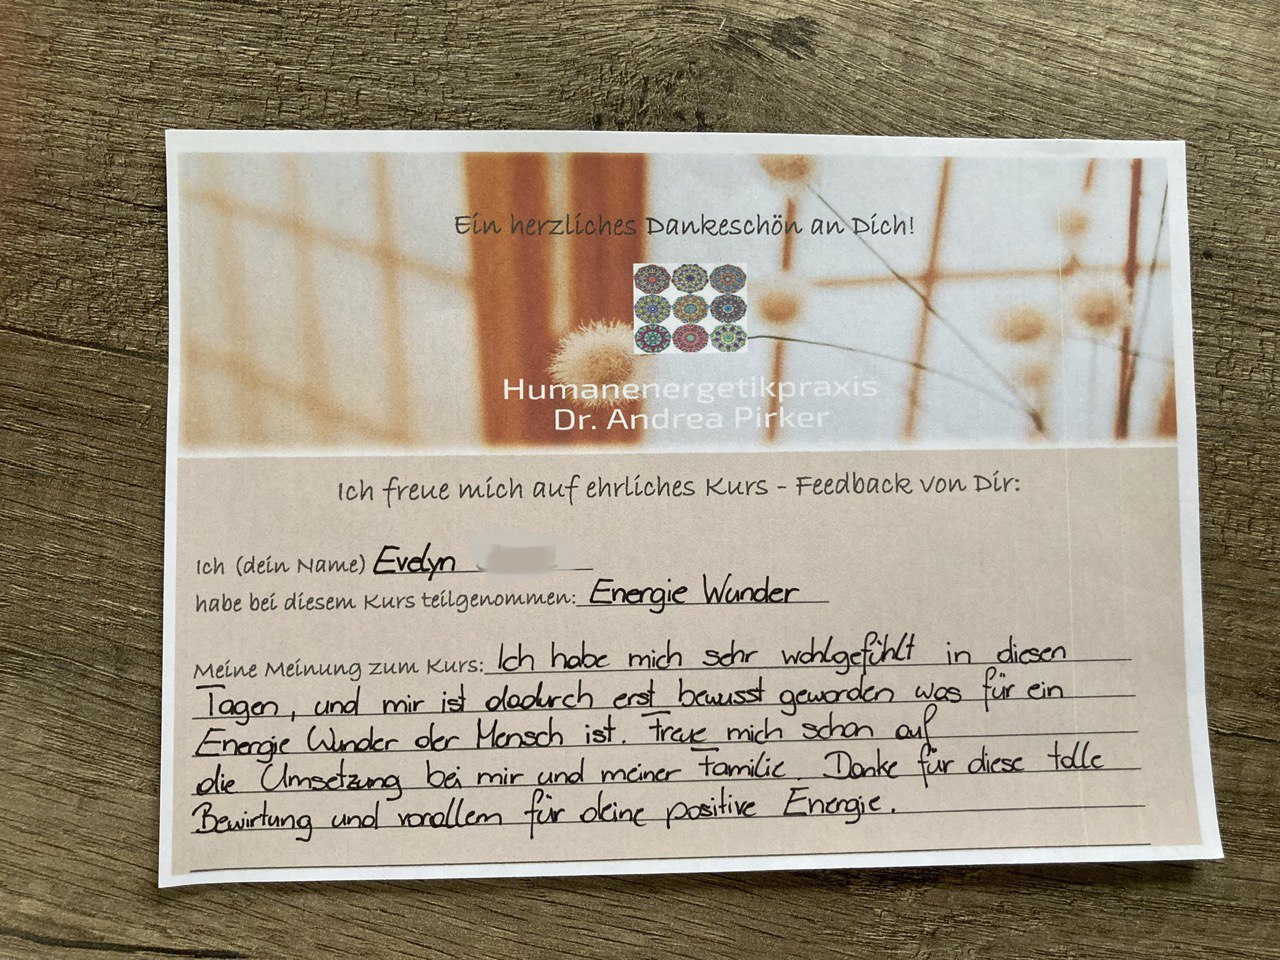 Ein herzliches Dankeschön an Dich!
Humanenergetikpraxis
Dr. Andrea Pirker
Ich freue mich auf ehrliches Kurs - Feedback von Dir:
Ich (dein Name) Evelyn
habe bei diesem Kurs teilgenommen: Energie Wunder
Meine Meinung zum Kurs: Ich habe mich sehr wohlgefühlt in diesen
Tagen, und mir ist dadurch erst bewusst geworden was für ein
Energie Wunder der Mensch ist. Freue mich schon auf
die Umsetzung bei mir und meiner Familie. Danke für diese tolle
Bewirtung und vorallem für deine positive Energie.